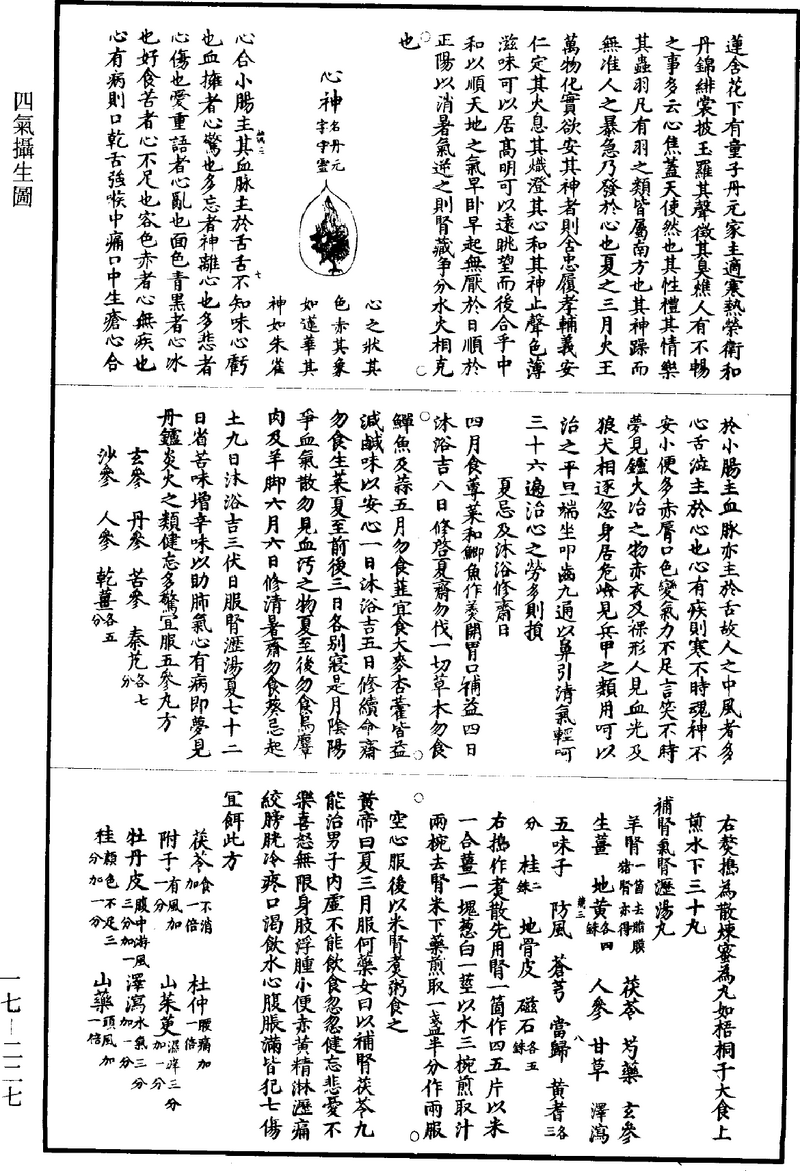 四氣攝生圖
蓮含花下有童子丹元家主適寒熱榮衛和
丹錦緋裳披玉羅其聲徵其臭燋人有不暢
之事多云心焦蓋天使然也其性禮其情樂
其蟲羽凡有羽之類皆屬南方也其神躁而
無准人之暴急乃發於心也夏之三月火王
萬物化實欲安其神者則含忠履孝輔義安
仁定其火息其熾澄其心和其神止聲色薄
滋味可以居高明可以遠眺望而後合乎中
和以順天地之氣早卧早起無厭於日順於
正陽以消暑氣逆之則腎藏爭分水火相克
也
心神 名丹元 字守靈
心之狀其
色赤其象
如蓮華其
神如朱雀
心合小腸主其血脉主於舌舌不知味心虧
也血擁者心驚也多忘者神離心也多悲者
心傷也愛重語者心亂也面色青黑者心冰
也好食苦者心不足也容色赤者心無疾也
心有病則口乾舌強喉中痛口中生瘡心合
於小腸主血脉亦主於舌故人之中風者多
心舌澁主於心也心有疾則寒不時魂神不
安小便多赤脣口色變氣力不足言笑不時
夢見鑪火冶之物赤衣及裸形人見血光及
狼犬相逐忽身居危嶮見兵甲之類用呵以
治之平旦端坐叩齒九遍以鼻引清氣輕呵
三十六遍治心之勞多則損
夏忌及沐浴修齋日
四月食蓴菜和鯽魚作羹開胃口補益四日
沐浴吉八日修啓夏齋勿伐一切草木勿食
鱓魚及蒜五月勿食韮宜食大麥杏藿皆益
減鹹味以安心一日沐浴吉五日修續命齋
勿食生菜夏至前後三日各别寢是月陰陽
爭血氣散勿見血汚之物夏至後勿食烏麞
肉及羊脚六月六日修清暑齋勿食葵忌起
土九日沐浴吉三伏日服腎瀝湯夏七十二
日省苦味增辛味以助肺氣心有病即夢見
丹鑪炎火之類健忘多驚宜服五參丸方
玄參 丹參 苦參 秦艽各七分
沙參 人參 乾薑各五分
右熬擣為散煉蜜為丸如梧桐子大食上
煎水下三十丸
補腎氣腎瀝湯丸
羊腎一箇去脂膜猪腎亦得 茯苓 芍藥 玄參
生薑 地黃各四銖 人參 甘草 澤瀉
五味子 防風 蒼芎 當歸 黃耆各三
分 桂二銖 地骨皮 磁石各五銖
右擣作煑散先用腎一箇作四五片以米
一合薑一塊葱白一莖以水三椀煎取汁
兩椀去腎米下藥煎取一盞半分作兩服
空心服後以米腎煑粥食之
黃帝曰夏三月服何藥女曰以補腎茯苓九
能治男子内虛不能飲食忽忽健忘悲憂不
樂喜怒無限身肢浮腫小便赤黃精淋瀝痛
絞膀胱冷疼口渴飲水心腹脹滿皆犯七傷
宜餌此方
茯苓食不消加一倍 杜仲腰痛加一倍
附子有風加一分 山茱萸濕痒三分加一分
牡丹皮腹中游風三分加一 澤瀉水氣三分加一分
桂顔色不足三分加一分 山藥頭風加一倍
一七—二二七